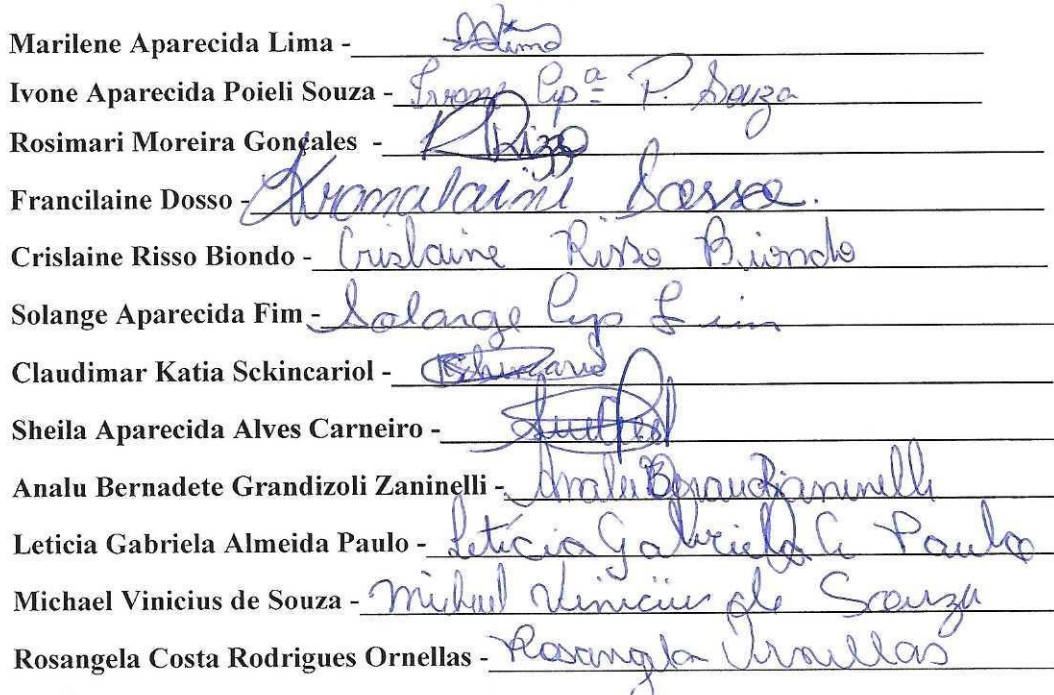 Marilene Aparecida Lima -
Ivone Aparecida Poieli Souza - Ivone Ap.ª P. Souza
Rosimari Moreira Gonçales -
Francilaine Dosso -
Crislaine Risso Biondo - Crislaine Risso Biondo
Solange Aparecida Fim - Solange Ap Fim
Claudimar Katia Sckincariol -
Sheila Aparecida Alves Carneiro -
Analu Bernadete Grandizoli Zaninelli -
Leticia Gabriela Almeida Paulo - Letícia Gabriela A Paulo
Michael Vinicius de Souza - Michael Vinicius de Souza
Rosangela Costa Rodrigues Ornellas - Rosangela Ornellas